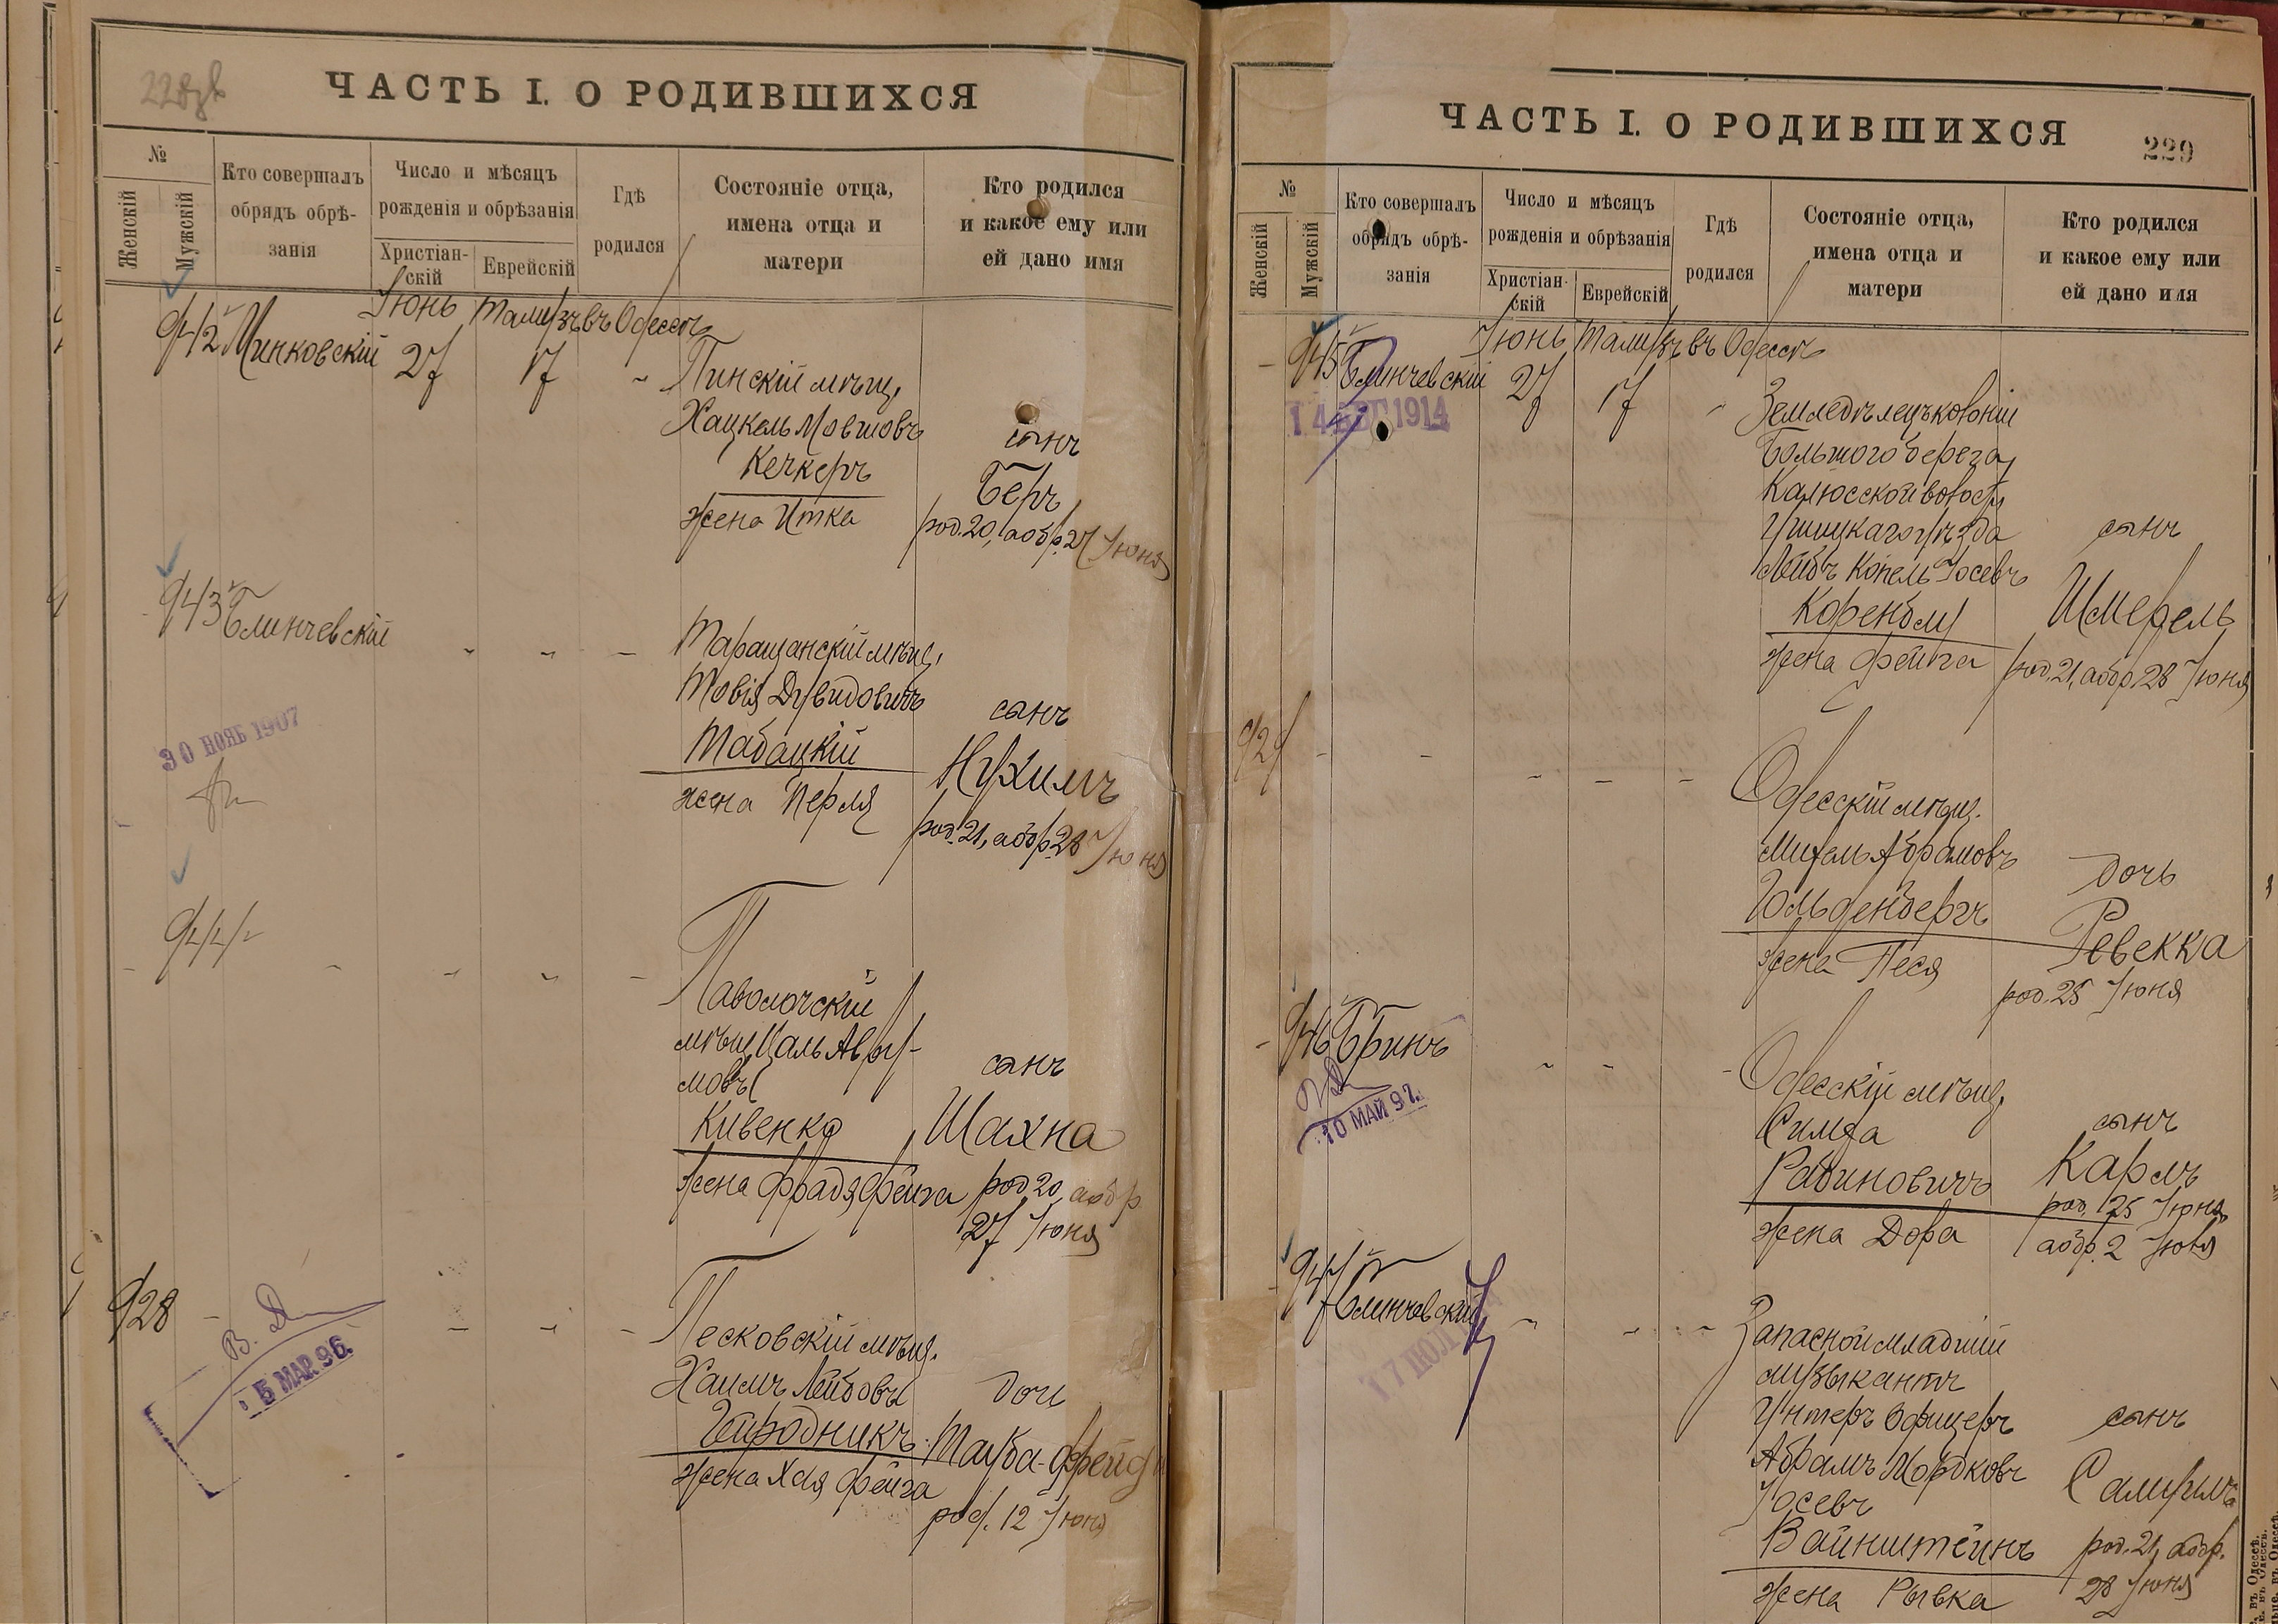 ЧАСТЬ I. О РОДИВШИХСЯ
№
Женскій
Мужскій
Кто совершалъ
обрядъ обрѣ-
занія
Число и мѣсяцъ
рожденія и обрѣзанія
Христіан-
скій
Еврейскій
Гдѣ
родился
Состояніе отца,
имена отца и
матери
Кто родился
и какое ему или
ей дано имя
Іюнь Тамузъ въ Одессѣ
942 Минковскій 27 17 Пинскій мѣщ.
Хацкель Мовшовъ
сынъ
Кечкеръ
Беръ
жена Итка
род. 20, а обр. 27 Іюня
943 Блинчевскій
Таращанскій мѣщ.
Товія Дувидовичъ
сынъ
Табацкій
Нухимъ
жена Перля
род. 21, а обр. 28 Іюня
30 НОЯБ 1907
944
Паволочскій
мѣщ. Цаль Авру-
мовъ
сынъ
Кивенко
Шахна
жена Фрадя Фейга
род 20, а обр
27 Іюня
928
В. Д
5 МАР. 96.
Песковскій мѣщ.
Хаимъ Лейбовъ
дочь
Гиродникъ
Тауба-Фрейда
жена Хая Фейга
род. 12 Іюня
ЧАСТЬ I. О РОДИВШИХСЯ
229
№
Женскій
Мужскій
Кто совершалъ
обрядъ обрѣ-
занія
Число и мѣсяцъ
рожденія и обрѣзанія
Христіан-
скій
Еврейскій
Гдѣ
родился
Состояніе отца,
имена отца и
матери
Кто родился
и какое ему или
ей дано имя
Іюнь Тамузъ въ Одессѣ
945 Блинчевскій 27 17
14 АВГ 1914
Земледѣлецъ колоніи
Большого берега,
Калюсской волости
Ушицкаго уѣзда
сынъ
Лейбъ Копель Іосевъ
Коренблу
Шмерель
жена Фейга
род. 21, а обр. 28 Іюня
929
Одесскій мѣщ.
Михель Абрамовъ
дочь
Гольденбергъ
Ревекка
жена Песя
род. 25 Іюня
946 Бринъ
10 МАЙ 97.
Одесскій мѣщ.
Симха
сынъ
Рабиновичъ
Карлъ
род. 25 Іюня,
жена Дора
а обр. 2 Іюля
947 Блинчевскій
Запасной младшій
музыкантъ
Унтеръ Офицеръ
сынъ
Абрамъ Мордковъ
Іосевъ
Самуилъ
Вайнштейнъ
род. 21, а обр.
28 Іюня
жена Рывка